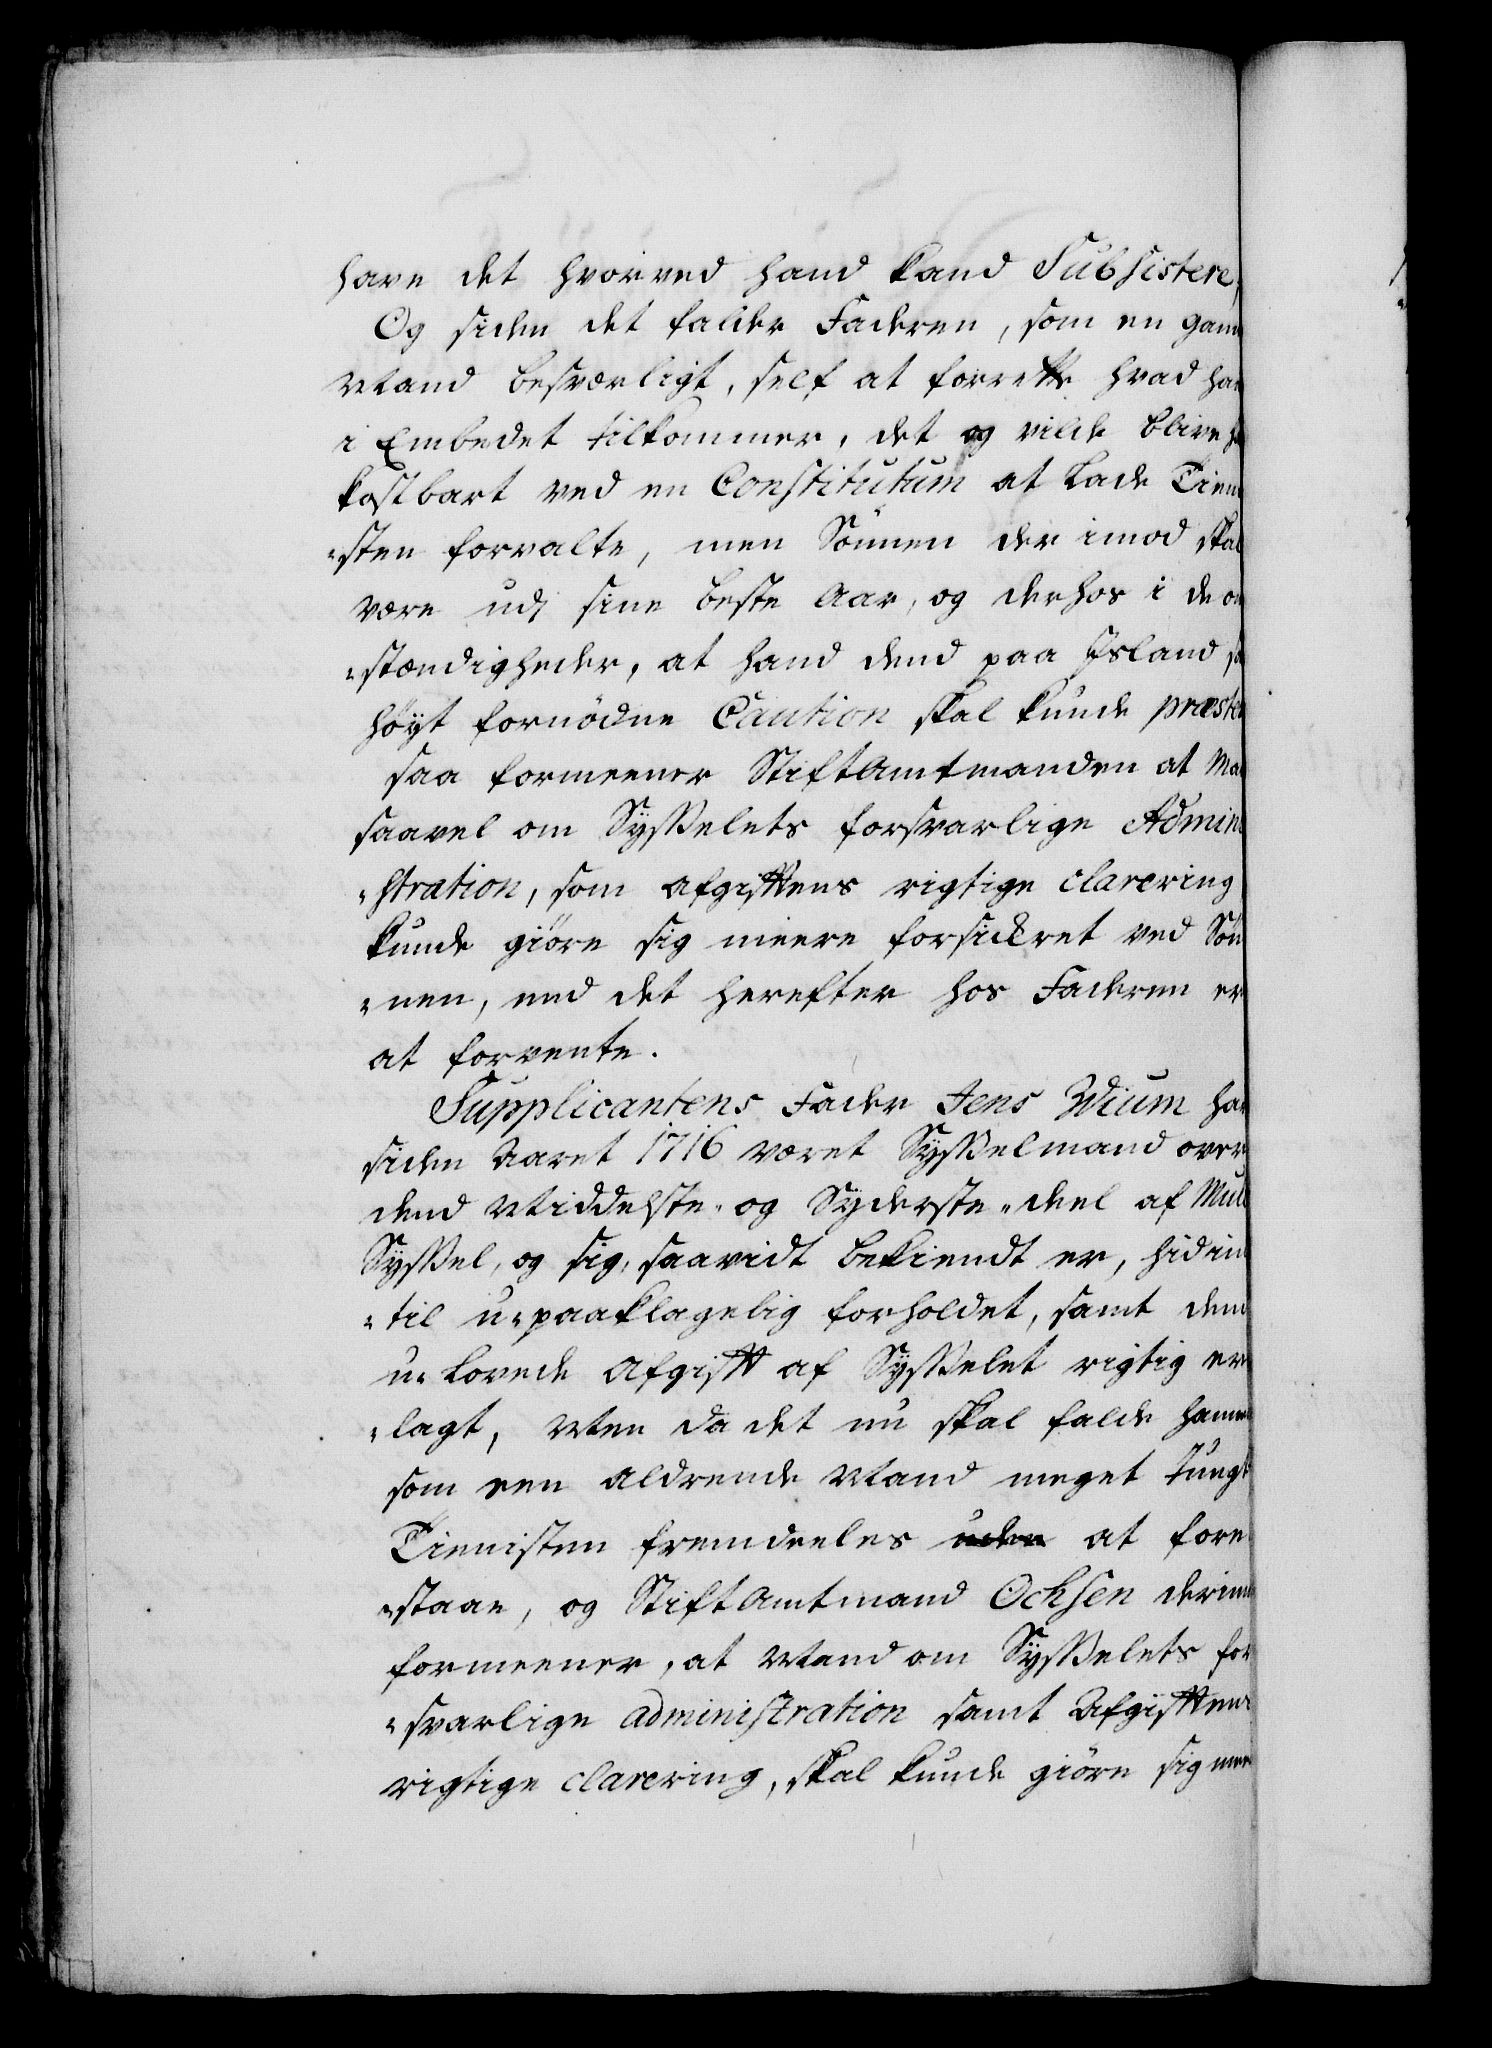 have det hvorved hand kand Subsistere,
Og siden det falder Faderen, som en gam
Mand besværligt, self at forrette hvad ha
i Embedet tilkommer, det og vilde blive
kostbart ved en Constitutum at lade Tiene
"sten forvalte, men Sönnen der imod skal
være udj sine beste Aar, og derhos i de o
"stændigheder, at hand dend paa Island s
höyt fornödne Caution skal kunde præste
saa formeener StiftAmtmanden at Ma
saavel om Sysselets forsvarlige Admini
"stration, som Afgifftens rigtige clarering
kunde giöre sig meere forsickret ved Sön
"nen, end det herefter hos Faderen er
at forvente.
Supplicantens Fader Jens Wium har
siden Aaret 1716 været Sysselmand over
dend Middelste- og Syderste-deel af Mule
Syssel, og sig, saavidt bekiendt er, hidin
"til u-paaklagelig forholdet, samt den
u-lovede Afgifft af Sysselet rigtig er
"lagt, Men da det nu skal falde ham
som een Aldrende Mand meget Tungt
Tienisten fremdeeles uden at fore
"staae, og StiftAmtmand Ochsen derim
formeener, at Mand om Sysselets for
"svarlige administration samt Afgifftens
rigtige clarering, skal kunde giöre sig mee